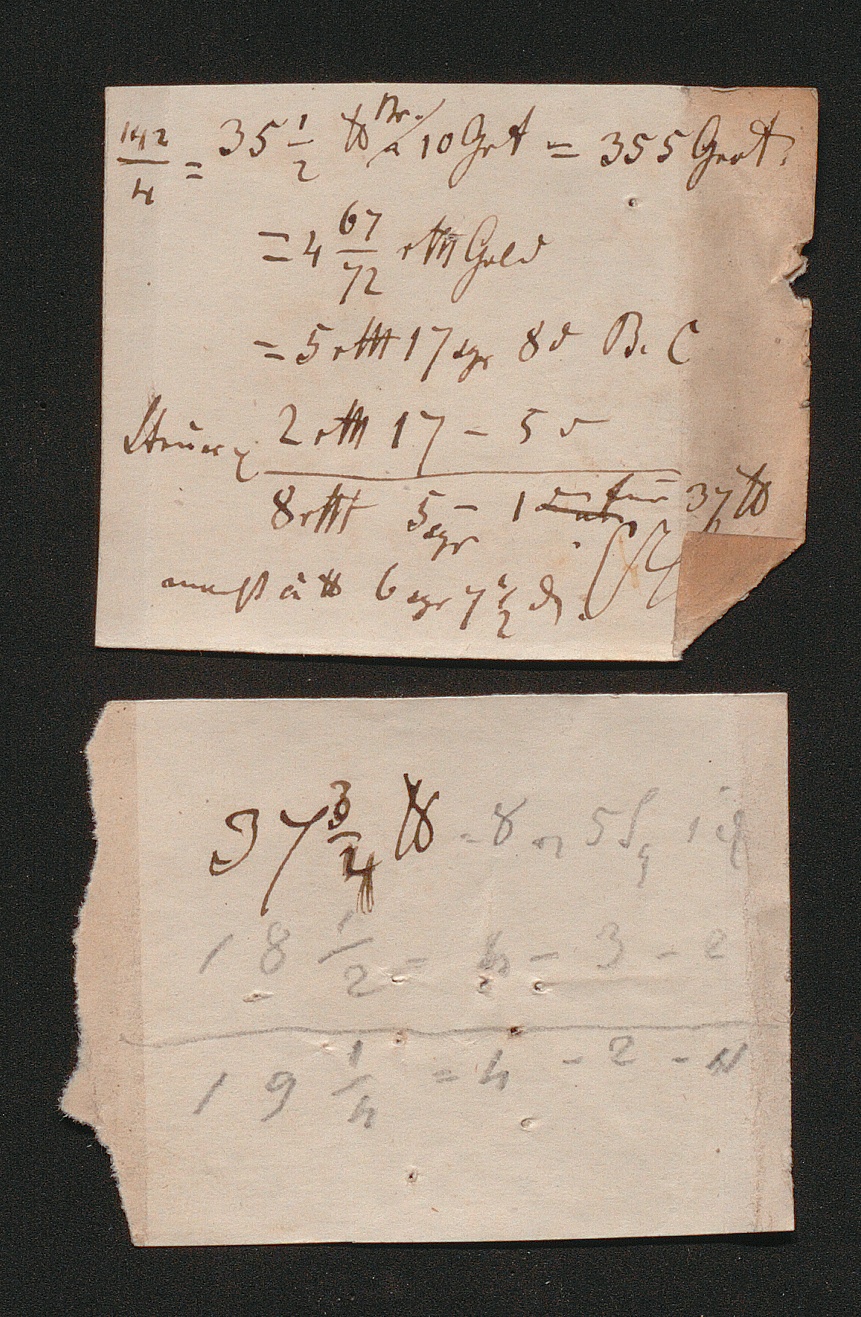 142/4 = 35 1/2 ℔ Br. à 10 Grt = 355 Grot.
= 4 67/72 rth Gold
= 5 rth 17 sgr 8 d B. C
Steuer 2 rth 17 - 5 d
8 rth 5 sgr 1 d für 37 ℔
macht à ℔ 6 sgr 7 1/2 d.
37 3/4 ℔ - 8 5 Sg 1
18 1/2 = 4 - 3 - 2
19 1/4 = 4 - 2 - 11